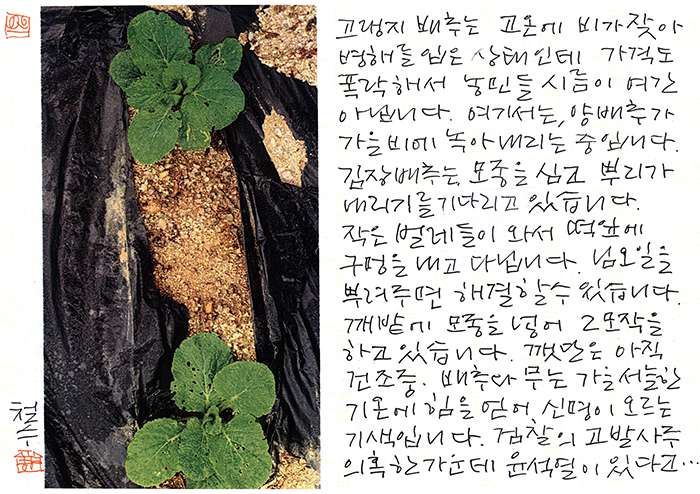 고랭지 배추는 고온에 비가 잦아
병해를 입은 상태인데 가격도
폭락해서 농민들 시름이 여간
아닙니다. 여기서는, 양배추가
가을비에 녹아내리는 중입니다.
김장배추는, 모종을 심고 뿌리가
내리기를 기다리고 있습니다.
작은 벌레들이 와서 떡잎에
구멍을 내고 다닙니다. 님오일을
뿌려주면 해결할 수 있습니다.
깨밭에 모종을 넣어 2모작을
하고 있습니다. 깻단은 아직
건조중. 배추와 무는 가을 서늘한
기온에 힘을 얻어, 신명이 오르는
기색입니다. 검찰의 고발사주
의혹 한가운데 윤석열이 있다고…
철수